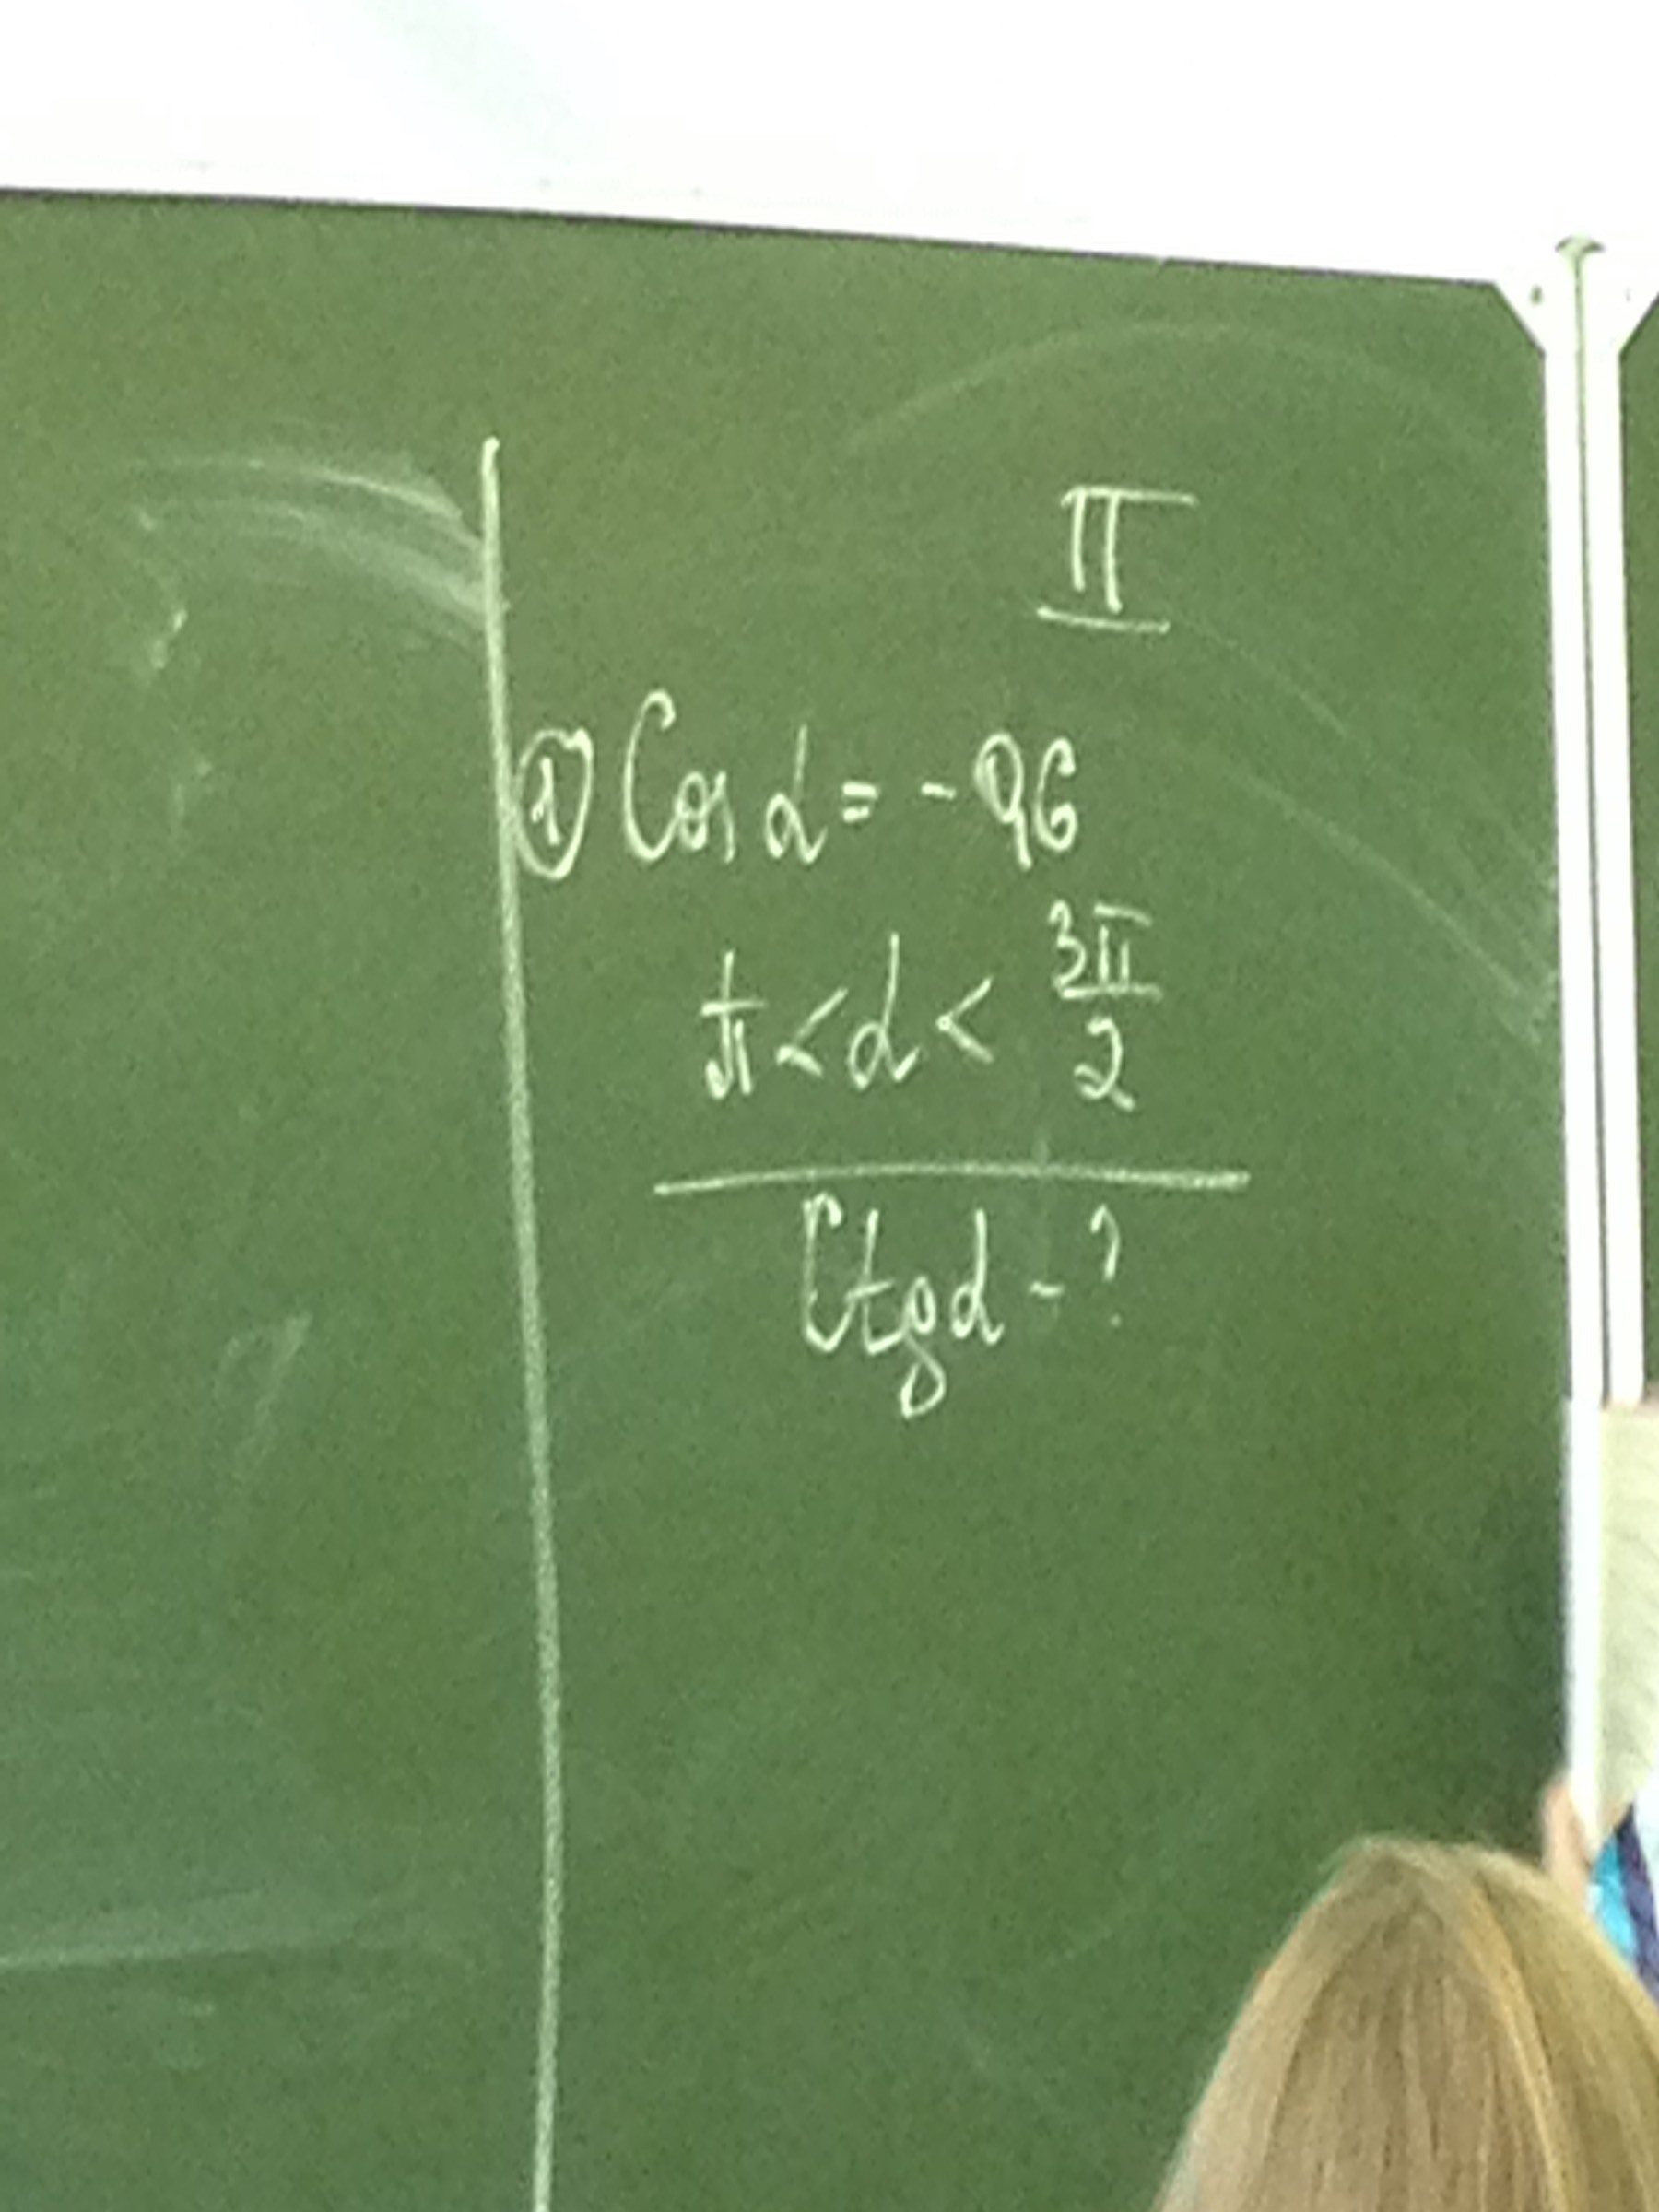 II
① Cos α = - 0,6
π < α < 3π/2
Ctg α - ?